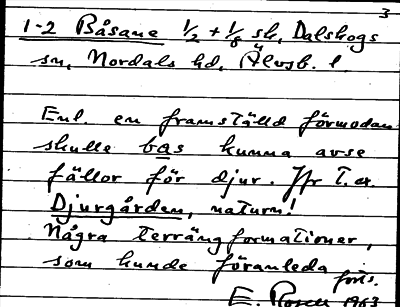 3
1-2 Båsane 1/2 + 1/8 sk, Dalskogs
sn, Nordals hd, Älvsb. l.
Enl. en framställd förmodan
skulle bas kunna avse
fällor för djur. Jfr t.ex.
Djurgården, naturn!
Några terrängformationer,
som kunde föranleda
E. 1963